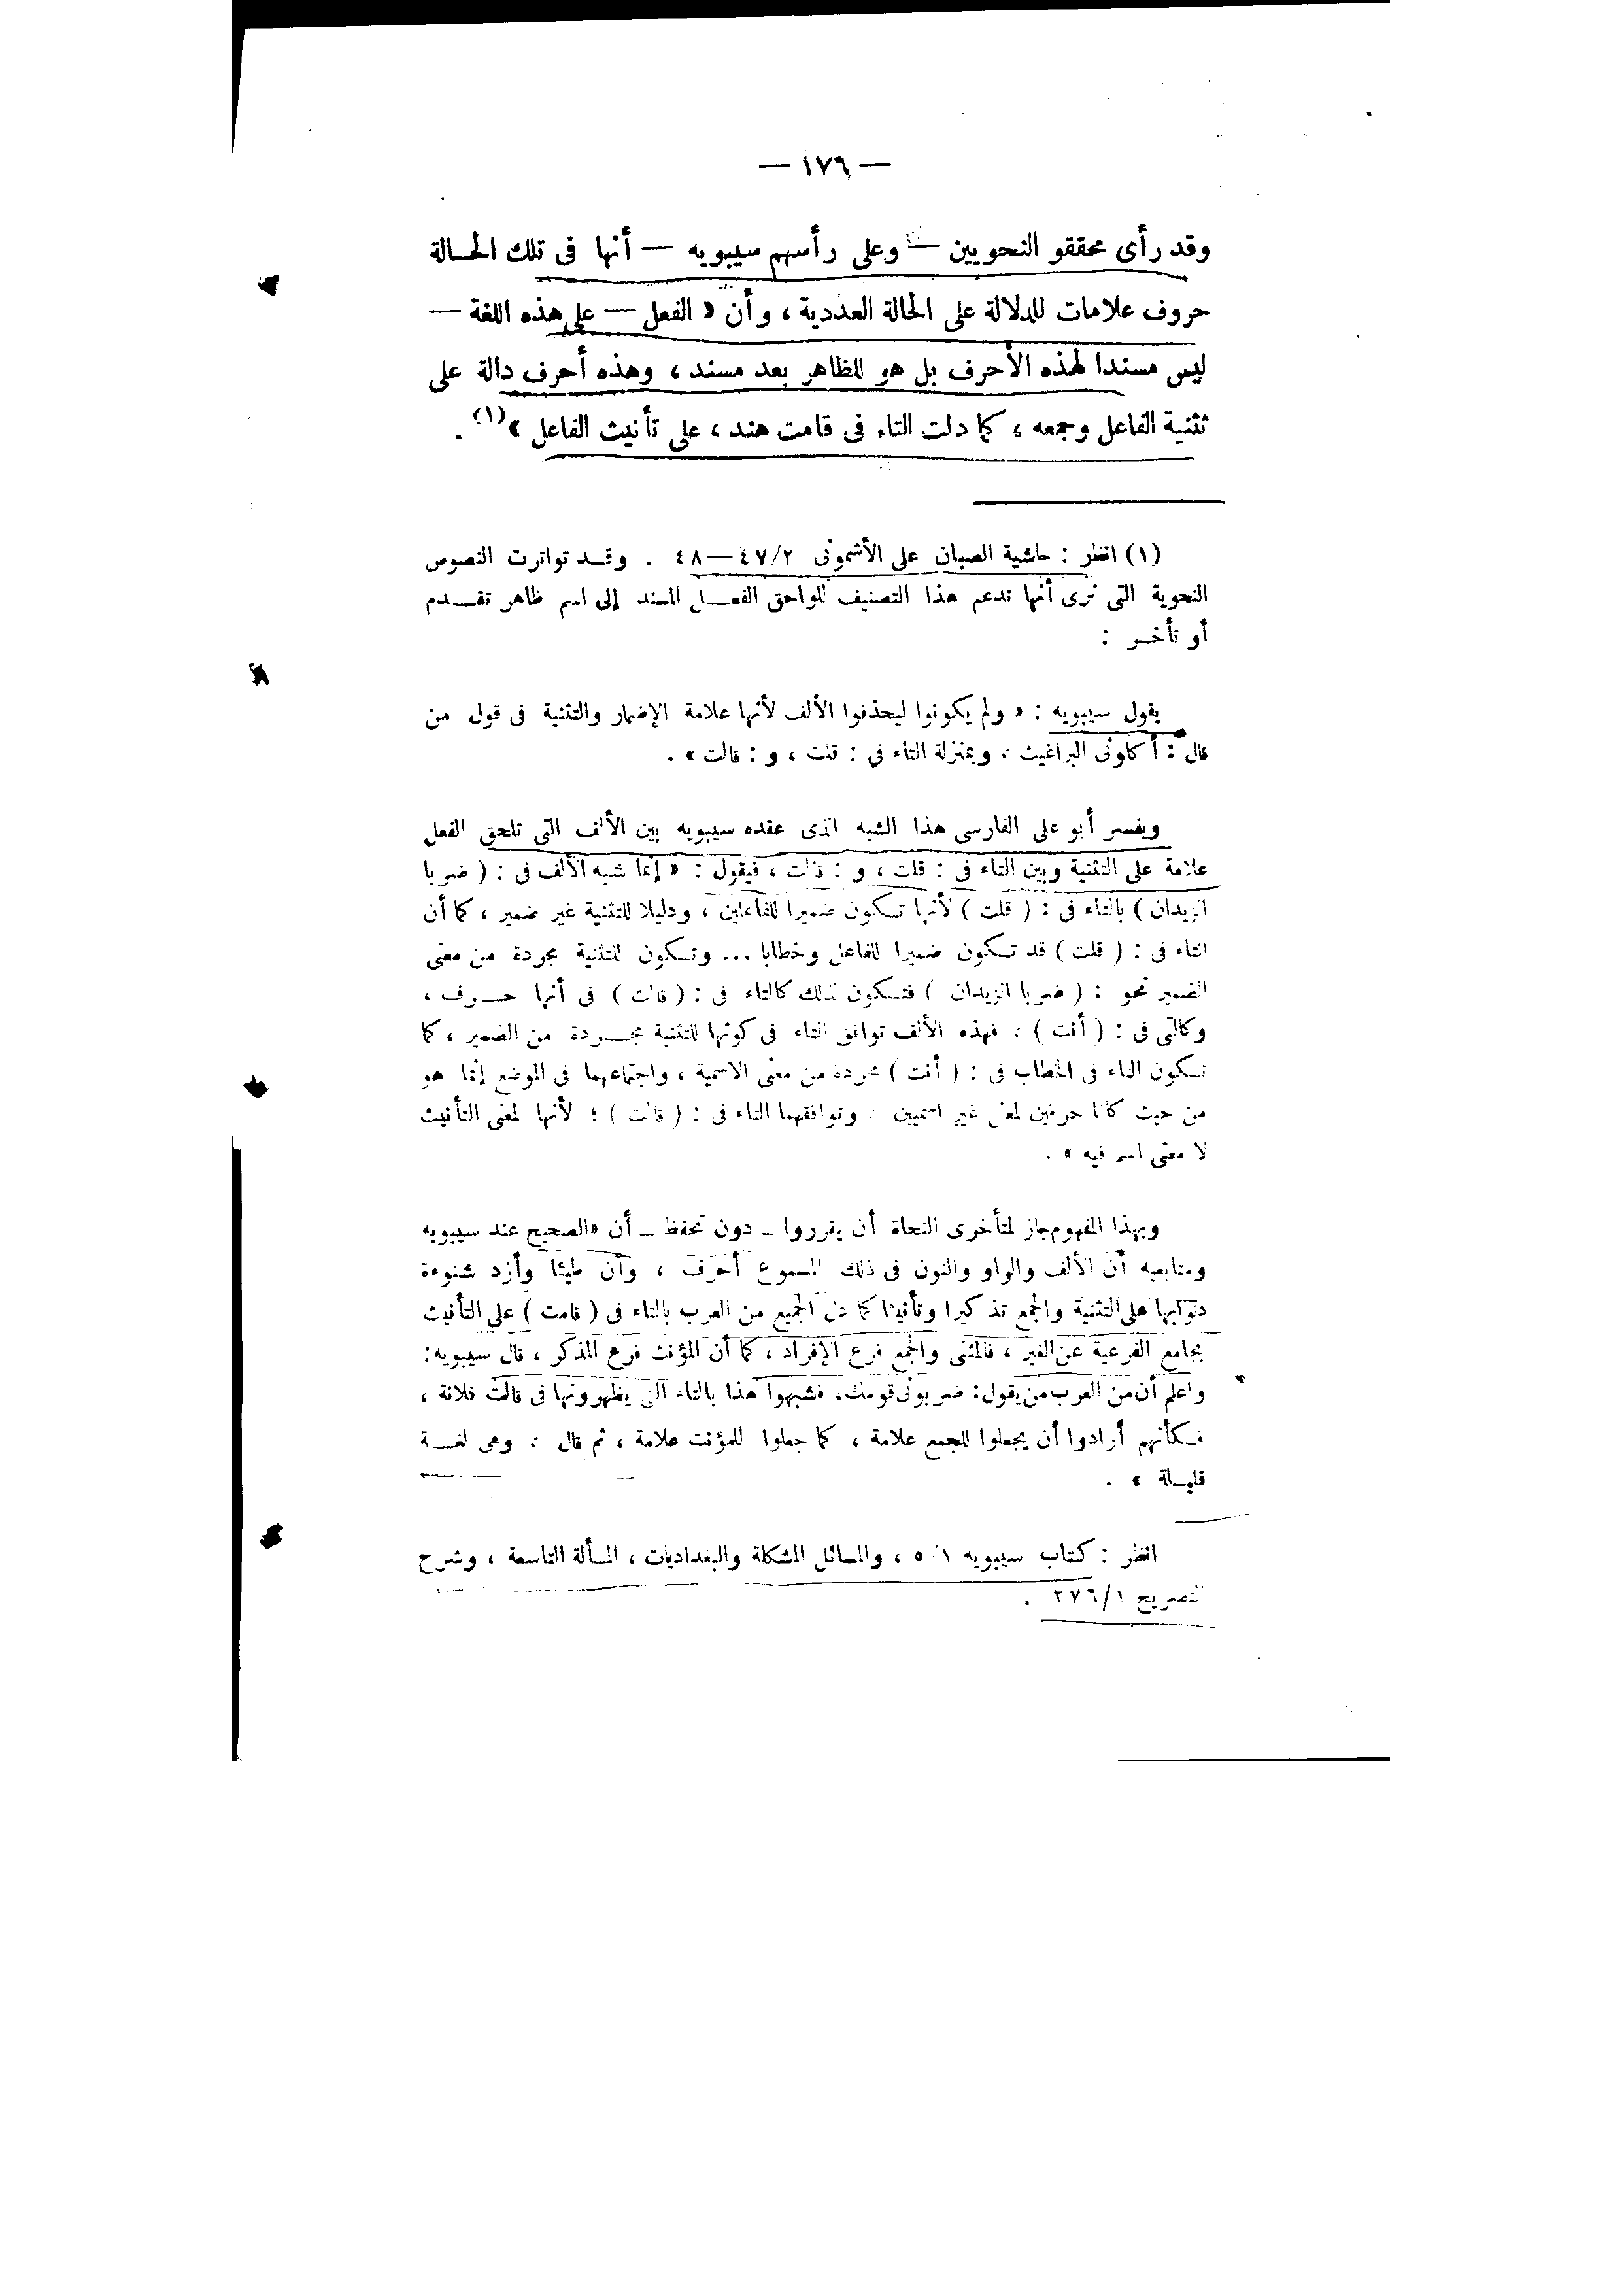 — ١٧٦ —
وقد رأى محققو النحويين — وعلى رأسهم سيبويه — أنها فى تلك الحالة
حروف علامات للدلالة على الحالة العددية ، وأن « الفعل — على هذه اللغة —
ليس مسندا لهذه الأحرف بل هو للظاهر بعد مسند ، وهذه أحرف دالة على
تثنية الفاعل وجمعه ، كما دلت التاء فى قامت هند ، على تأنيث الفاعل »(١) .
(١) انظر : حاشية الصبان على الأشمونى ٤٧/٢—٤٨ . وقد تواترت النصوص
النحوية التى نرى أنها تدعم هذا التصنيف للواحق الفعل المسند إلى اسم ظاهر تقدم
أو تأخر :
يقول سيبويه : « ولم يكونوا ليحذفوا الألف لأنها علامة الإضمار والتثنية فى قول من
قال : أكلونى البراغيث ، وبمنزلة التاء في : قلت ، و : قالت » .
ويفسر أبو على الفارسى هذا الشبه الذى عقده سيبويه بين الألف التى تلحق الفعل
علامة على التثنية وبين التاء فى : قلت ، و : قالت ، فيقول : « إنما شبه الألف فى : ( ضربا
الزيدان ) بالتاء فى : ( قلت ) لأنها تكون ضميرا للفاعلين ، ودليلا للتثنية غير ضمير ، كما أن
التاء فى : ( قلت ) قد تكون ضميرا للفاعل وخطابا ... وتكون للتثنية مجردة من معنى
الضمير نحو : ( ضربا الزيدان ) فتكون لذلك كالتاء فى : ( قالت ) فى أنها حرف ،
وكالتى فى : ( أنت ) . فهذه الألف توافق التاء فى كونها للتثنية مجردة من الضمير ، كما
تكون التاء فى الخطاب فى : ( أنت ) مجردة من معنى الاسمية ، واجتماعهما فى الموضع إنما هو
من حيث كانا حرفين لمعنى غير اسميين . وتوافقهما التاء فى : ( قالت ) ؛ لأنها لمعنى التأنيث
لا معنى اسم فيه » .
وبهذا المفهوم جاز لمتأخرى النحاة أن يقرروا ــ دون تحفظ ــ أن « الصحيح عند سيبويه
ومتابعيه أن الألف والواو والنون فى ذلك المسموع أحرف ، وأن طيئا وأزد شنوءة
دلوا بها على التثنية والجمع تذكيرا وتأنيثا كما دل الجميع من العرب بالتاء فى ( قامت ) على التأنيث
بجامع الفرعية عن الغير ، فالمثنى والجمع فرع الإفراد ، كما أن المؤنث فرع المذكر ، قال سيبويه :
واعلم أن من العرب من يقول : ضربونى قومك . فشبهوا هذا بالتاء التى يظهرونها فى قالت فلانة ،
فكأنهم أرادوا أن يجعلوا للجمع علامة ، كما جعلوا للمؤنث علامة ، ثم قال : وهى لغة
قليلة » .
انظر : كتاب سيبويه ٥/١ ، والمسائل المشكلة والبغداديات ، المسألة التاسعة ، وشرح
التصريح ٢٧٦/١ .